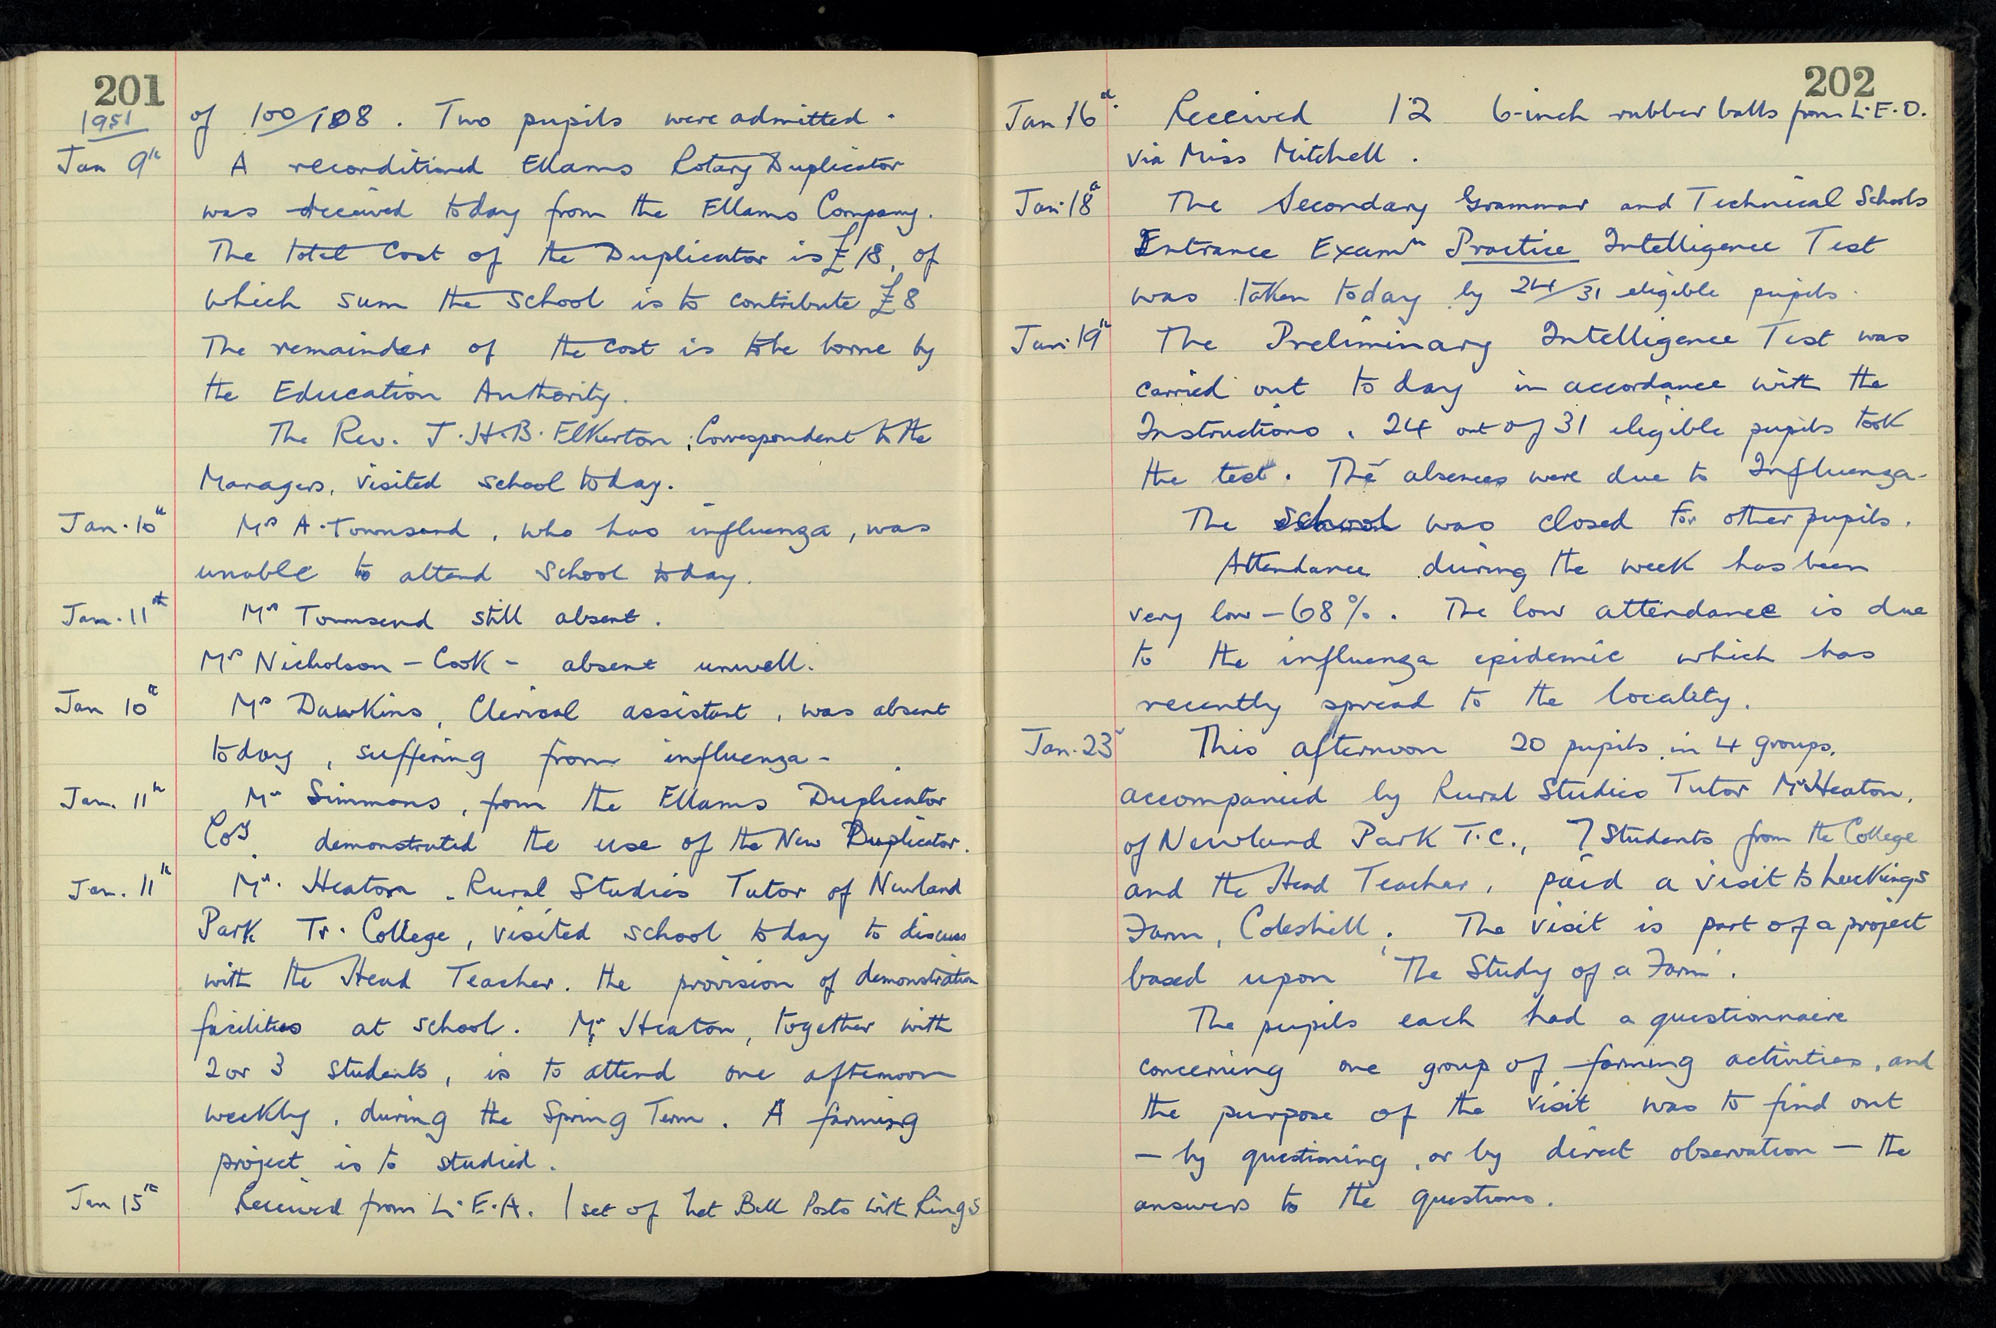 201
1951
of 100/108. Two pupils were admitted.
Jan 9th A reconditioned Ellams Rotary Duplicator
was received today from the Ellams Company.
The total cost of the Duplicator is £18, of
which sum the school is to contribute £8
The remainder of the cost is to be borne by
the Education Authority.
The Rev. J.H.B. Elkerton, Correspondent to the
Managers, visited school today.
Jan. 10th Mrs A. Townsend, who has influenza, was
unable to attend school today.
Jan. 11th Mrs Townsend still absent.
Mrs Nicholson - Cook - absent unwell.
Jan 10th Mrs Dawkins, Clerical assistant, was absent
today, suffering from influenza.
Jan. 11th Mr Simmons, from the Ellams Duplicator
Coy. demonstrated the use of the New Duplicator.
Jan. 11th Mr. Heaton - Rural Studies Tutor of Newland
Park Tr. College, visited school today to discuss
with the Head Teacher. the provision of demonstration
facilities at school. Mr Heaton, together with
2 or 3 students, is to attend one afternoon
weekly, during the Spring Term. A farming
project is to studied.
Jan 15th Received from L.E.A. 1 set of Net Ball Posts with Rings
202
Jan 16th. Received 12 6-inch rubber balls from L.E.O.
via Miss Mitchell.
Jan. 18th The Secondary Grammar and Technical Schools
Entrance Examn Practice Intelligence Test
was taken today by 24/31 eligible pupils.
Jan. 19th The Preliminary Intelligence Test was
carried out today in accordance with the
Instructions. 24 out of 31 eligible pupils took
the test. The absences were due to Influenza.
The school was closed for other pupils.
Attendance during the week has been
very low - 68%. The low attendance is due
to the influenza epidemic which has
recently spread to the locality.
Jan. 23 This afternoon 20 pupils, in 4 groups,
accompanied by Rural Studies Tutor Mr Heaton,
of Newland Park T.C., 7 Students from the College
and the Head Teacher, paid a visit to Luckings
Farm, Coleshill. The visit is part of a project
based upon 'The Study of a Farm'.
The pupils each had a questionnaire
concerning one group of farming activities, and
the purpose of the visit was to find out
- by questioning, or by direct observation - the
answers to the questions.